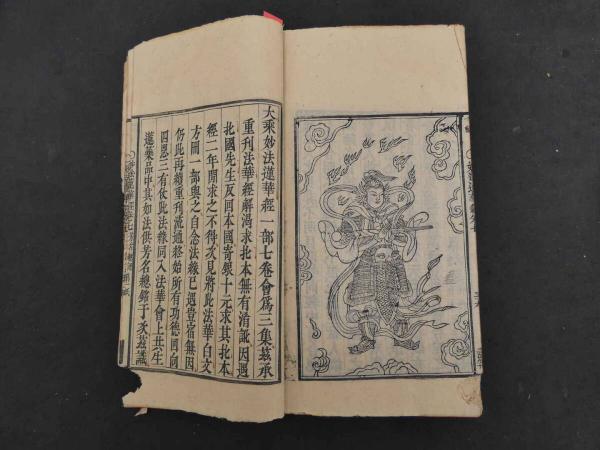 大乘妙法蓮華經一部七卷會爲三集茲承
重刊法華經解渴求北本無有清訛因遇
北國先生反回本國寄銀十元求其北本
經二年間求之不得次見將此法華白文
方圓一部與之自念法緣已遇豈宿無因
仍此再續重刊流通終始所有功德回向
四恩三有仗此法緣同入法華會上共生
蓮蘂品中其如法供芳名總鐫于次茲識